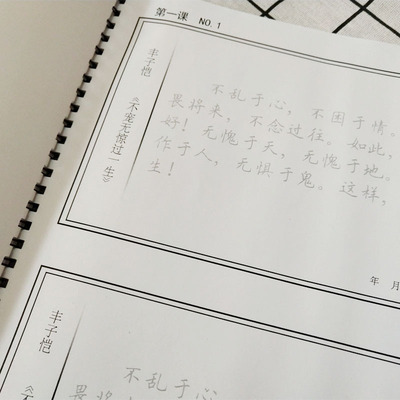 第一课 NO.1
丰子恺
《不宠无惊过一生》
不乱于心，不困于情。
畏将来，不念过往。如此，
好！无愧于天，无愧于地。
作于人，无惧于鬼。这样，
生！
年 月
丰子恺
《不
不乱于心
畏将